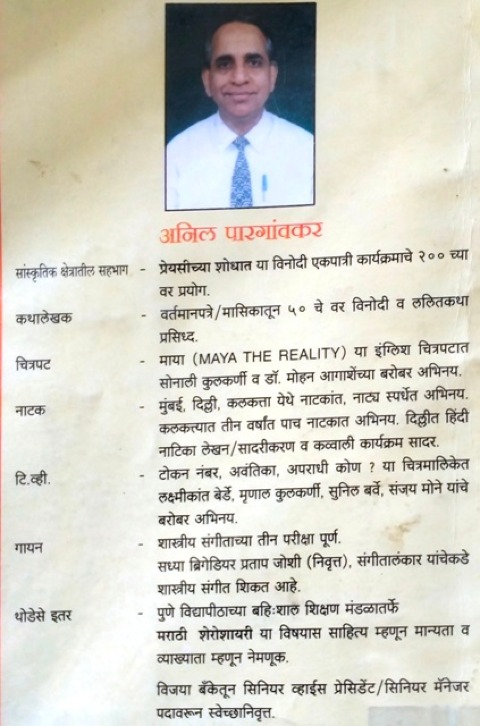 अनिल पारगांवकर
सांस्कृतिक क्षेत्रातील सहभाग - प्रेयसीच्या शोधात या विनोदी एकपात्री कार्यक्रमाचे २०० च्या
वर प्रयोग.
कथालेखक - वर्तमानपत्रे/मासिकातून ५० चे वर विनोदी व ललितकथा
प्रसिध्द.
चित्रपट - माया (MAYA THE REALITY) या इंग्लिश चित्रपटात
सोनाली कुलकर्णी व डॉ. मोहन आगाशेंच्या बरोबर अभिनय.
नाटक - मुंबई, दिल्ली, कलकत्ता येथे नाटकांत, नाट्य स्पर्धेत अभिनय.
कलकत्त्यात तीन वर्षांत पाच नाटकात अभिनय. दिल्लीत हिंदी
नाटिका लेखन/सादरीकरण व कव्वाली कार्यक्रम सादर.
टि.व्ही. - टोकन नंबर, अवंतिका, अपराधी कोण ? या चित्रमालिकेत
लक्ष्मीकांत बेर्डे, मृणाल कुलकर्णी, सुनिल बर्वे, संजय मोने यांचे
बरोबर अभिनय.
गायन - शास्त्रीय संगीताच्या तीन परीक्षा पूर्ण.
सध्या ब्रिगेडियर प्रताप जोशी (निवृत्त), संगीतालंकार यांचेकडे
शास्त्रीय संगीत शिकत आहे.
थोडेसे इतर - पुणे विद्यापीठाच्या बहिःशाल शिक्षण मंडळातर्फे
मराठी शेरोशायरी या विषयास साहित्य म्हणून मान्यता व
व्याख्याता म्हणून नेमणूक.
विजया बँकेतून सिनियर व्हाईस प्रेसिडेंट/सिनियर मॅनेजर
पदावरून स्वेच्छानिवृत्त.